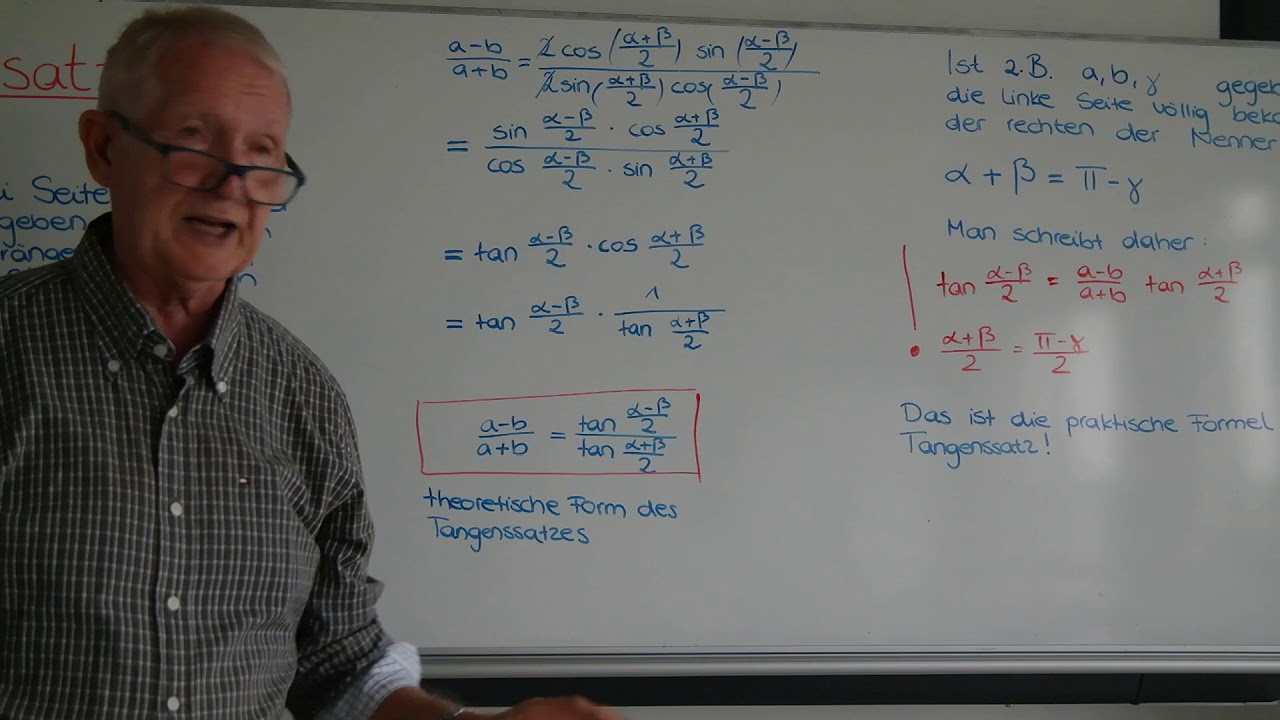 satz
i Seite
geben
a-b/a+b = 2 cos(α+β/2) sin(α-β/2) / 2 sin(α+β/2) cos(α-β/2)
= sin α-β/2 · cos α+β/2 / cos α-β/2 · sin α+β/2
= tan α-β/2 · cos α+β/2
= tan α-β/2 · 1 / tan α+β/2
a-b/a+b = tan α-β/2 / tan α+β/2
theoretische Form des
Tangenssatzes
Ist z.B. a, b, γ gegeb
die linke Seite völlig beka
der rechten der Nenner
α + β = π - γ
Man schreibt daher:
tan α-β/2 = a-b/a+b tan α+β/2
• α+β/2 = π-γ/2
Das ist die praktische Formel
Tangenssatz!